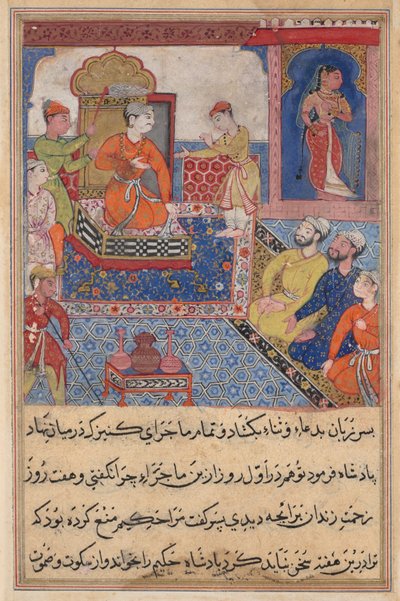 پسر زبان بدعاء و ثناء بکشاد و تمام ماجرای کنیزک در میان نهاد
پادشاه فرمود تو هم در اول روز ازین ماجراء چرا نکفتی و هفت روز
زحمت زندان بر آنچه دیدی پسر کفت مرا حکیم منع کرده بود که
ترا درین هفته سخن نباید کرد پادشاه حکیم را بخواند و از سکوت و